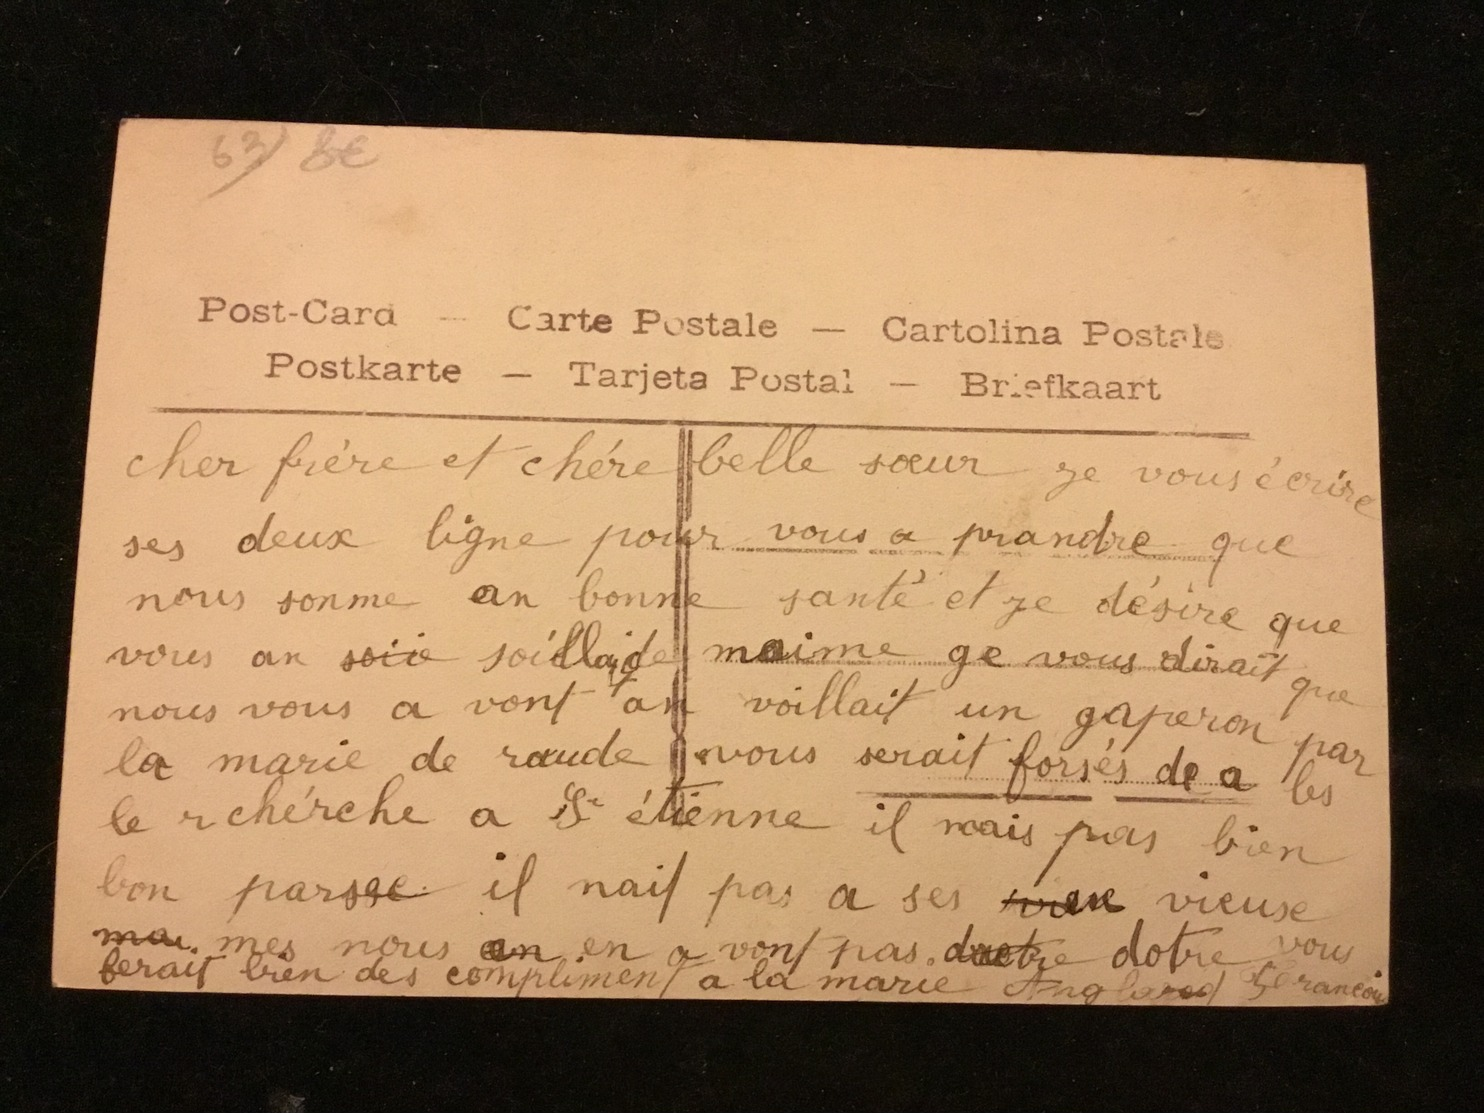 63/ 8€
Post-Card — Carte Postale — Cartolina Postale
Postkarte — Tarjeta Postal — Briefkaart
cher frére et chére belle sœur ze vous écrire
ses deux ligne pour vous a prandre que
nous somme an bonne santé et ze désire que
vous an soillaide maime ge vous dirait que
nous vous a vont an voillait un gaperon par
la marie de raude vous serait forsés de a les
le rchérche a St étienne il nais pas bien
bon parsse il nait pas a ses vieuse
mes nous en a vont pas dotre vous
ferait bien des compliment a la marie François